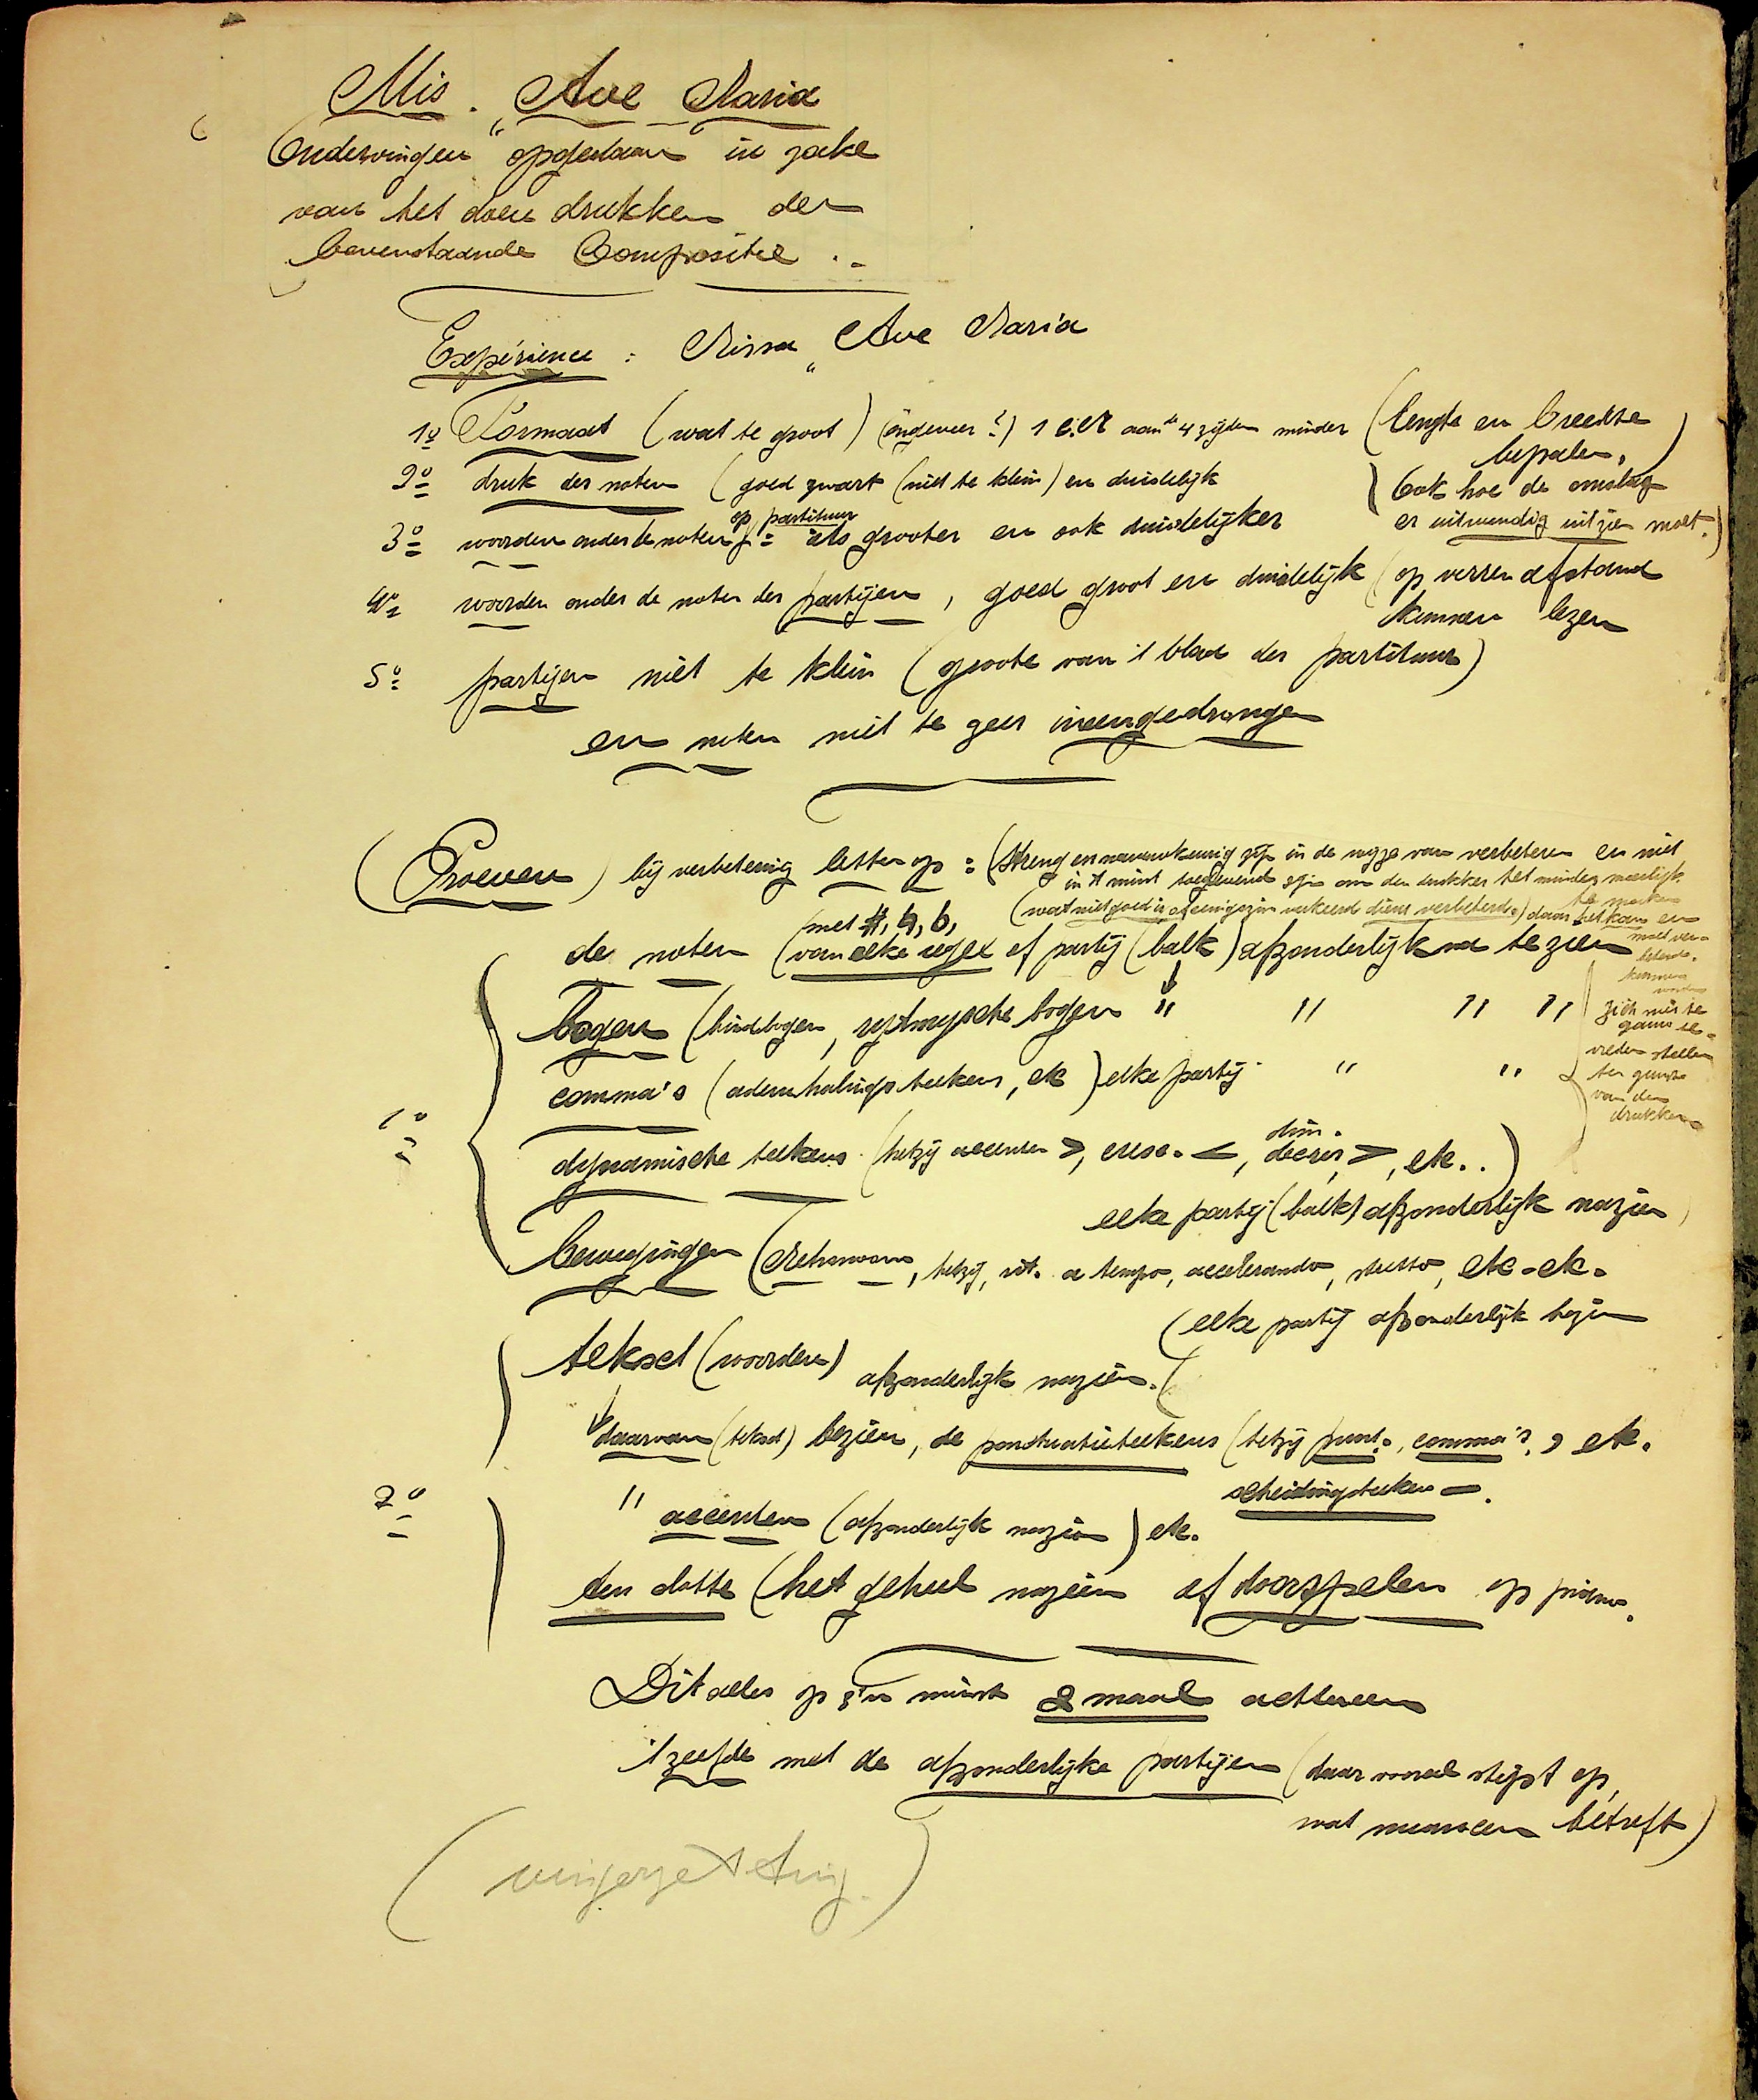 Mis. „Ave Maria
Ondervingen opgedaan in zake
van het doen drukken der
bovenstaande Compositie ..
Expérience : Missa „Ave Maria
1º Formaat (wat te groot) (ongeveer?) 1 c.M aan de 4 zijden minder (lengte en breedte
bepalen,)
2º druk der noten (goed zwart (niet te klein) en duidelijk
(Ook hoe de omslag
er uitwendig uitzien moet.)
op partituur
3º woorden onder de noten = iets grooter en ook duidelijker
4º woorden onder de noten der partijen, goed groot en duidelijk (op verren afstand
kunnen lezen
5º partijen niet te klein (groote van 't blad der partituur)
en noten niet te zeer ineengedrongen
(Proeven) bij verbetering letten op : (streng en nauwkeurig zijn in de wijze van verbeteren en niet
in 't minst toegevend zijn om den drukker het minder moeilijk
te maken
(wat niet goed is of eenigszins verkeerd dient verbeterd.) daar het kan en
moet ver-
beterd
kunnen
worden
met #, ♮, b,
de noten (van elke regel of partij (balk) afzonderlijk na te zien
bogen (bindbogen, rythmysche bogen " " " "
zich niet te
gauw te-
vreden stellen
ten gunste
van den
drukker
comma's (ademhalingsteekens, etc) elke partij " "
1º
dim.
dynamische teekens (hetzij accenten >, cresc. <, decres >, etc..)
elke partij (balk) afzonderlijk nazien
bewegingen (Metronoom, hetzij, rit. a tempo, accelerando, stretto, etc. etc.
(elke partij afzonderlijk bezien
tekst (woorden) afzonderlijk nazien.
daarvan (tekst) bezien, de punctuatieteekens (hetzij punt ., comma's , etc.
scheidingsteeken - .
2º
" accenten (afzonderlijk nazien) etc.
ten slotte (het geheel nazien of doorspelen op piano.
Dit alles op z'n minst 2 maal achtereen
't zelfde met de afzonderlijke partijen (daar vooral stipt op,
wat nuancen betreft)
(vingerzetting)